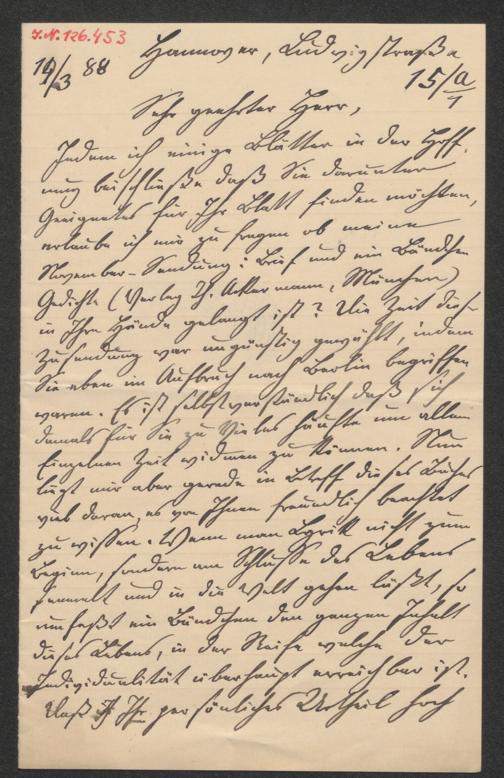 J.N. 126.453
Hannover, Ludwigstraße
19/3 88 15/a/1
Sehr geehrter Herr,
Indem ich einige Blätter in der Hoff-
nung beischließe daß Sie darunter
Geeignetes für Ihr Blatt finden möchten,
erlaube ich mir zu fragen ob meine
November-Sendung: Brief und ein Bändchen
Gedichte (Verlag Th. Ackermann, München)
in Ihre Hände gelangt ist? Die Zeit der
Zusendung war ungünstig gewählt, indem
Sie eben im Aufbruch nach Berlin begriffen
waren. Es ist selbstverständlich daß sich
damals für Sie zu Vieles häufte um allem
Einzelnen Zeit widmen zu können. Nun
liegt mir aber gerade in Betreff dieses Buches
viel daran, es von Ihnen freundlich beachtet
zu wissen. Wenn man Lyrik nicht zum
Beginn, sondern am Schlusse des Lebens
sammelt und in die Welt gehen läßt, so
umfaßt ein Bändchen den ganzen Inhalt
dieses Lebens, in der Reife welche der
Individualität überhaupt erreichbar ist.
Daß Ihr persönliches Urtheil hoch